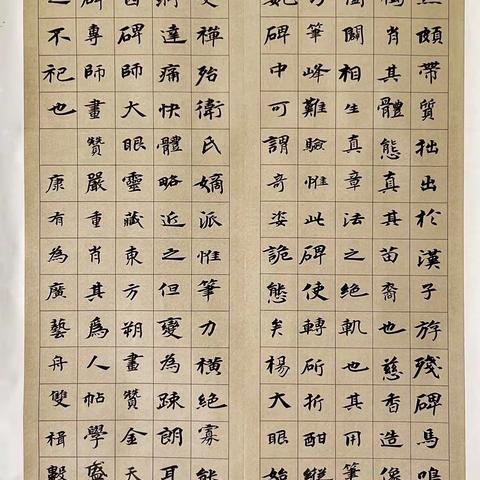 頗帶質拙出於漢子斿殘碑馬鳴
肖其體態真其苗裔也慈香造像
關相生真章法之絕軌也其用筆
筆峰難驗惟此碑使轉斫折酣縱
妃碑中可謂奇姿詭態矣楊大眼始
殆衛氏嫡派惟筆力橫絕寡能
達痛快體略近之但變為疎朗耳
碑師大眼靈藏東方朔畫贊金天
碑專師畫贊嚴重肖其爲人帖學盛
不祀也 康有為廣藝舟雙楫數